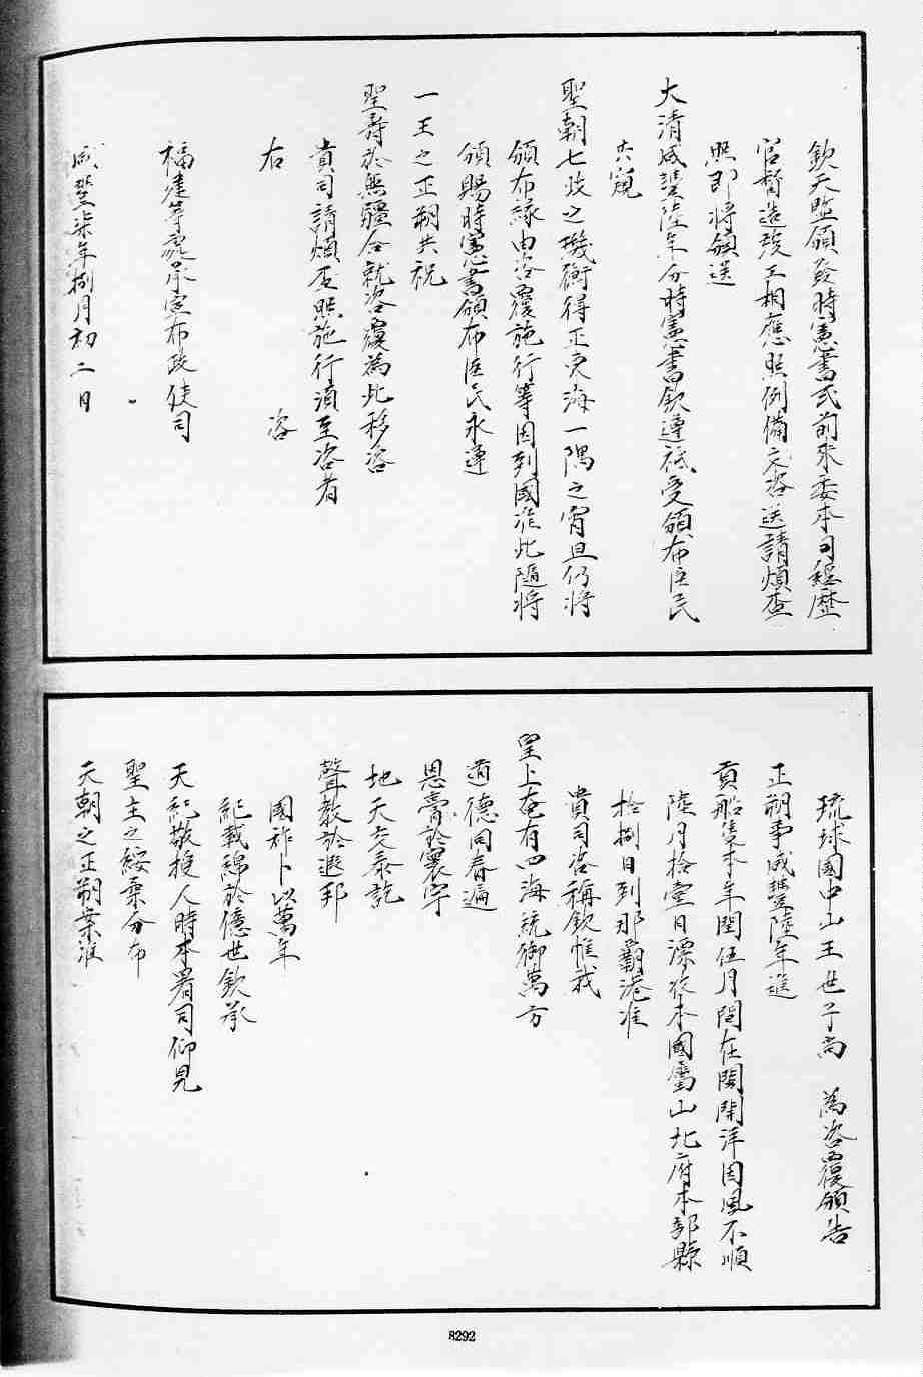 欽天監頒發時憲書式前來委本司經歷
官督造竣工相應照例備文咨送請煩查
照即將領送
大清咸豐陸年分時憲書欽遵祗受頒布臣民
共窺
聖朝七政之璣衡得正克海一隅之宵旦仍將
頒布緣由咨覆施行等因到國准此隨將
頒賜時憲書頒布臣民永遵
一王之正朔共祝
聖壽於無疆合就咨覆為此移咨
貴司請煩查照施行須至咨者
右 咨
福建等處承宣布政使司
咸豐柒年捌月初二日
琉球國中山王世子尚 為咨覆頒告
正朔事咸豐陸年進
貢船隻本年閏伍月間在閩開洋因風不順
陸月拾壹日漂收本國屬山北府本部縣
拾捌日到那霸港准
貴司咨稱欽惟我
皇上奄有四海統御萬方
道德同春遍
恩膏於寰宇
地天交泰訖
聲教於遐邦
國祚卜以萬年
紀載綿於億世欽承
天紀敬授人時本署司仰見
聖主之綏乘分布
天朝之正朔案准
8292